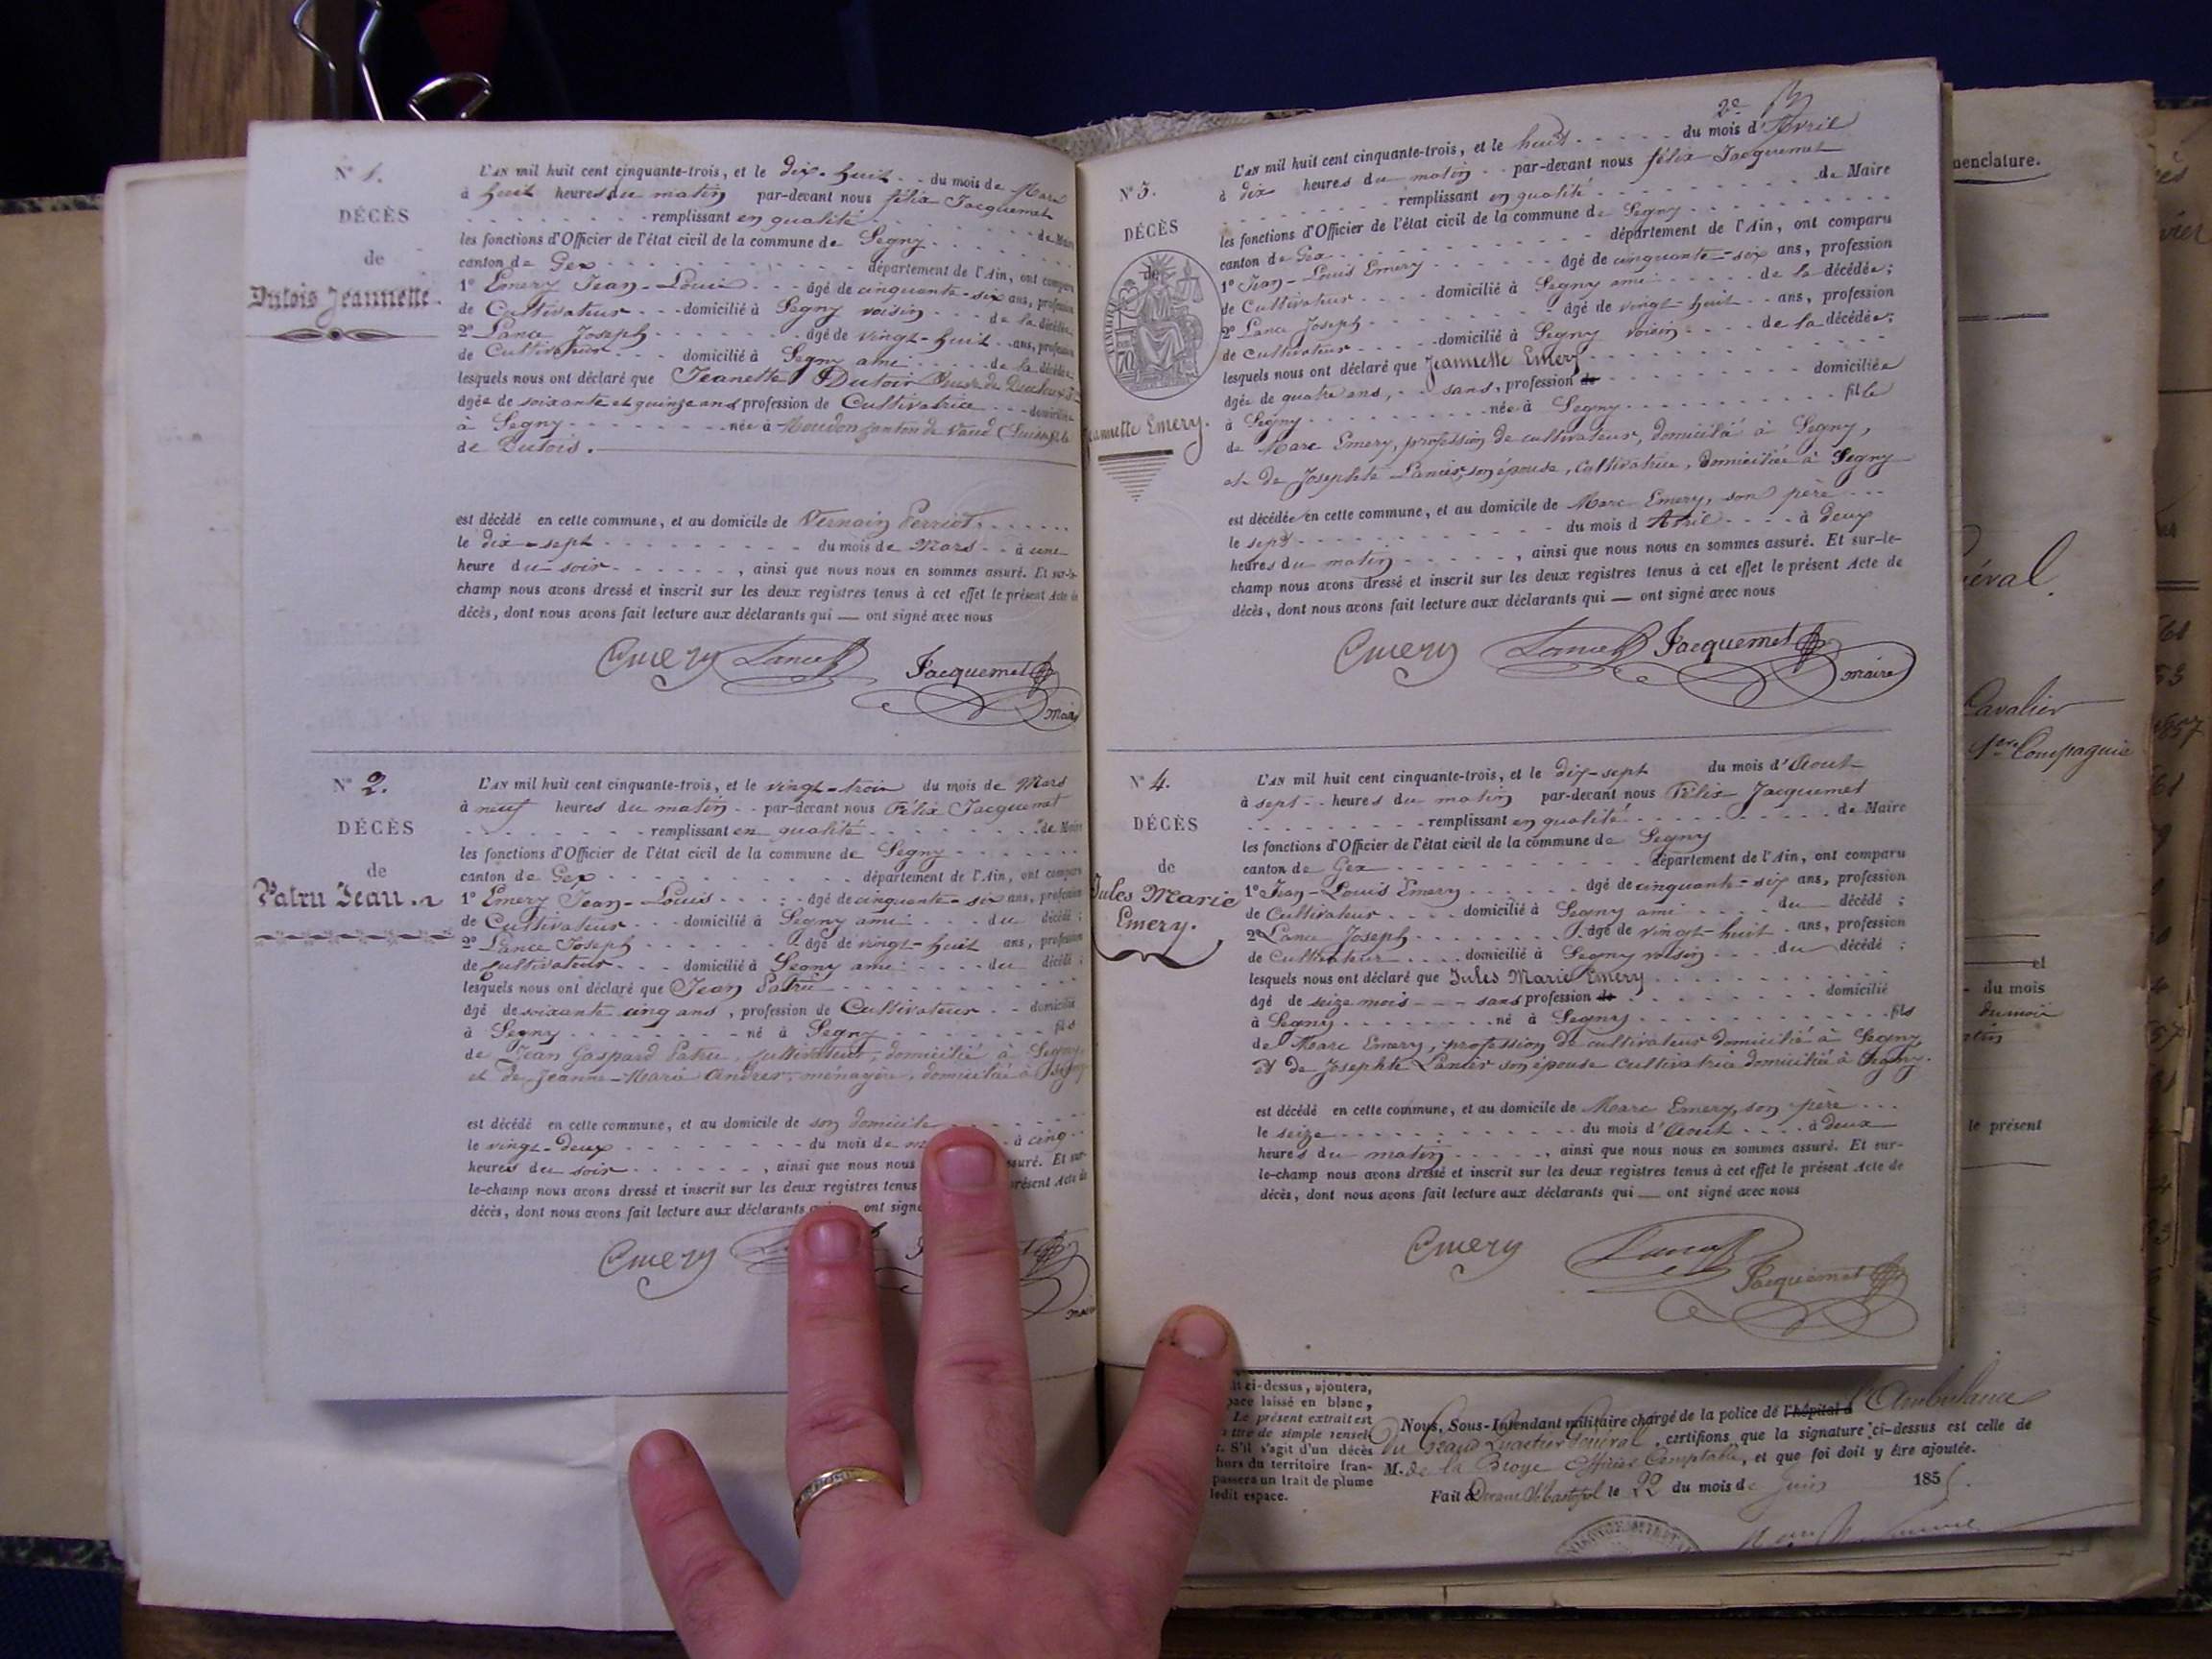 N° 1.
DÉCÈS
de
Dutois Jeannette.
L'AN mil huit cent cinquante-trois, et le dix-huit du mois de Mars
à huit heures du matin par-devant nous félix Jacquemet
remplissant en qualité de Maire
les fonctions d'Officier de l'état civil de la commune de Segny
canton de Gex département de l'Ain, ont comparu
1° Emery Jean-Louis âgé de cinquante-six ans, profession
de Cultivateur domicilié à Segny voisin de la décédée
2° Lance Joseph âgé de vingt-huit ans, profession
de Cultivateur domicilié à Segny ami de la décédée
lesquels nous ont déclaré que Jeanette Dutoir
âgée de soixante et quinze ans profession de Cultivatrice domiciliée
à Segny née à Moudon canton de Vaud (Suisse) fille
de Dutois.
est décédé en cette commune, et au domicile de Vernain Perriot
le dix-sept du mois de Mars à une
heure du soir, ainsi que nous nous en sommes assuré. Et sur-le-
champ nous avons dressé et inscrit sur les deux registres tenus à cet effet le présent Acte de
décès, dont nous avons fait lecture aux déclarants qui — ont signé avec nous
Emery Lance Jacquemet
maire
N° 2.
DÉCÈS
de
Patru Jean.
L'AN mil huit cent cinquante-trois, et le vingt-trois du mois de Mars
à neuf heures du matin par-devant nous Félix Jacquemet
remplissant en qualité de Maire
les fonctions d'Officier de l'état civil de la commune de Segny
canton de Gex département de l'Ain, ont comparu
1° Emery Jean-Louis âgé de cinquante-six ans, profession
de Cultivateur domicilié à Segny ami du décédé ;
2° Lance Joseph âgé de vingt-huit ans, profession
de cultivateur domicilié à Segny ami du décédé ;
lesquels nous ont déclaré que Jean Patru
âgé de soixante cinq ans, profession de Cultivateur domicilié
à Segny né à Segny fils
de Jean Gaspard Patru, cultivateur, domicilié à Segny,
et de Jeanne-Marie Andrer, ménagère, domiciliée à Segny
est décédé en cette commune, et au domicile de son domicile
le vingt-deux du mois de à cinq
heures du soir, ainsi que nous nous ssuré. Et sur-
le-champ nous avons dressé et inscrit sur les deux registres tenus présent Acte de
décès, dont nous avons fait lecture aux déclarants ont signé
Emery
2e
N° 3.
DÉCÈS
de
Jeannette Emery.
L'AN mil huit cent cinquante-trois, et le huit du mois d'Avril
à dix heures du matin par-devant nous félix Jacquemet
remplissant en qualité de Maire
les fonctions d'Officier de l'état civil de la commune de Segny
canton de Gex département de l'Ain, ont comparu
1° Jean-Louis Emery âgé de cinquante-six ans, profession
de Cultivateur domicilié à Segny ami de la décédée ;
2° Lance Joseph âgé de vingt-huit ans, profession
de cultivateur domicilié à Segny voisin de la décédée ;
lesquels nous ont déclaré que Jeannette Emery
âgée de quatre ans, sans, profession de domiciliée
à Segny née à Segny fille
de Marc Emery, profession de cultivateur, domicilié à Segny,
et de Josephte Lancer, son épouse, cultivatrice, domiciliée à Segny
est décédée en cette commune, et au domicile de Marc Emery, son père
le sept du mois d Avril à deux
heures du matin, ainsi que nous nous en sommes assuré. Et sur-le-
champ nous avons dressé et inscrit sur les deux registres tenus à cet effet le présent Acte de
décès, dont nous avons fait lecture aux déclarants qui — ont signé avec nous
Emery Lance Jacquemet
maire
N° 4.
DÉCÈS
de
Jules Marie
Emery.
L'AN mil huit cent cinquante-trois, et le dix-sept du mois d'Aout
à sept heures du matin par-devant nous Félix Jacquemet
remplissant en qualité de Maire
les fonctions d'Officier de l'état civil de la commune de Segny
canton de Gex département de l'Ain, ont comparu
1° Jean-Louis Emery âgé de cinquante-six ans, profession
de Cultivateur domicilié à Segny ami du décédé ;
2° Lance Joseph âgé de vingt-huit ans, profession
de Cultivateur domicilié à Segny voisin du décédé ;
lesquels nous ont déclaré que Jules Marie Emery
âgé de seize mois sans profession de domicilié
à Segny né à Segny fils
de Marc Emery, profession de cultivateur domicilié à Segny,
et de Josephte Lancer son épouse cultivatrice domiciliée à Segny.
est décédé en cette commune, et au domicile de Marc Emery, son père
le seize du mois d'Aout à deux
heures du matin, ainsi que nous nous en sommes assuré. Et sur-
le-champ nous avons dressé et inscrit sur les deux registres tenus à cet effet le présent Acte de
décès, dont nous avons fait lecture aux déclarants qui — ont signé avec nous
Emery Lance
Jacquemet
enclature.
éral.
Cavalier
1ère Compagnie
et
du mois
du mois
le présent
ci-dessus, ajoutera,
laissé en blanc,
Le présent extrait est
titre de simple rensei-
S'il s'agit d'un décès
hors du territoire fran-
passera un trait de plume
ledit espace.
Nous, Sous-Intendant militaire chargé de la police de l'hôpital d l'Ambulance
du Grand Quartier Général, certifions que la signature ci-dessus est celle de
M. de la Broye Officier Comptable, et que foi doit y être ajoutée.
Fait à Devant Sébastopol le 22 du mois de Juin 1855.